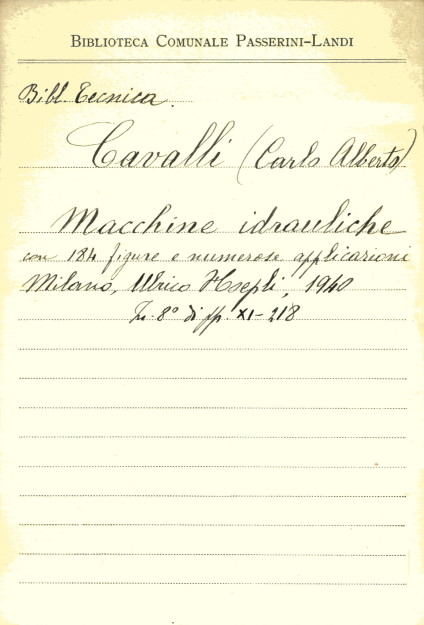 BIBLIOTECA COMUNALE PASSERINI-LANDI
Bibl. Tecnica.
Cavalli (Carlo Alberto)
Macchine idrauliche
con 184 figure e numerose applicazioni
Milano, Ulrico Hoepli, 1940
In 8° di pp. XI-218